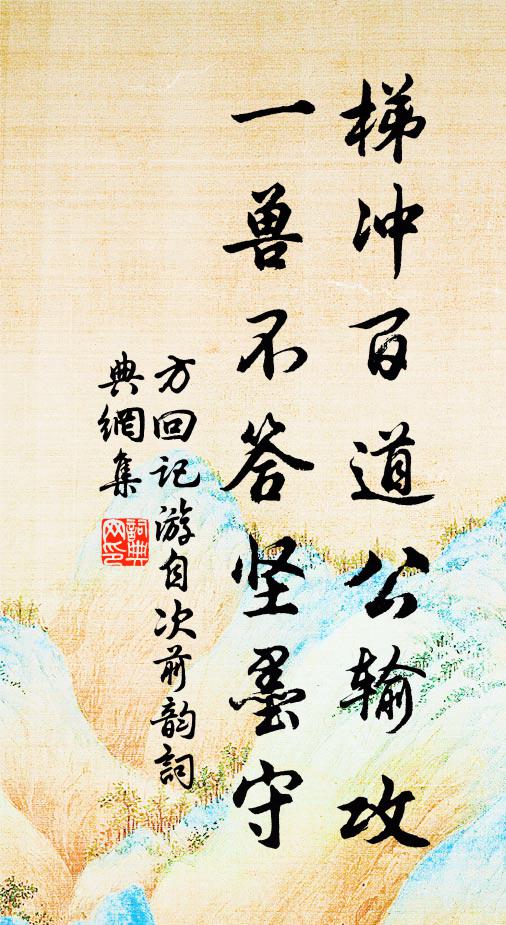 梯冲百道公输攻
一兽不答坚墨守
方回记游自次前韵词
典網集
詞典網印